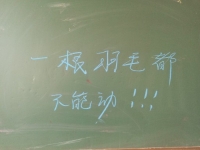 一根羽毛都
不能动!!!